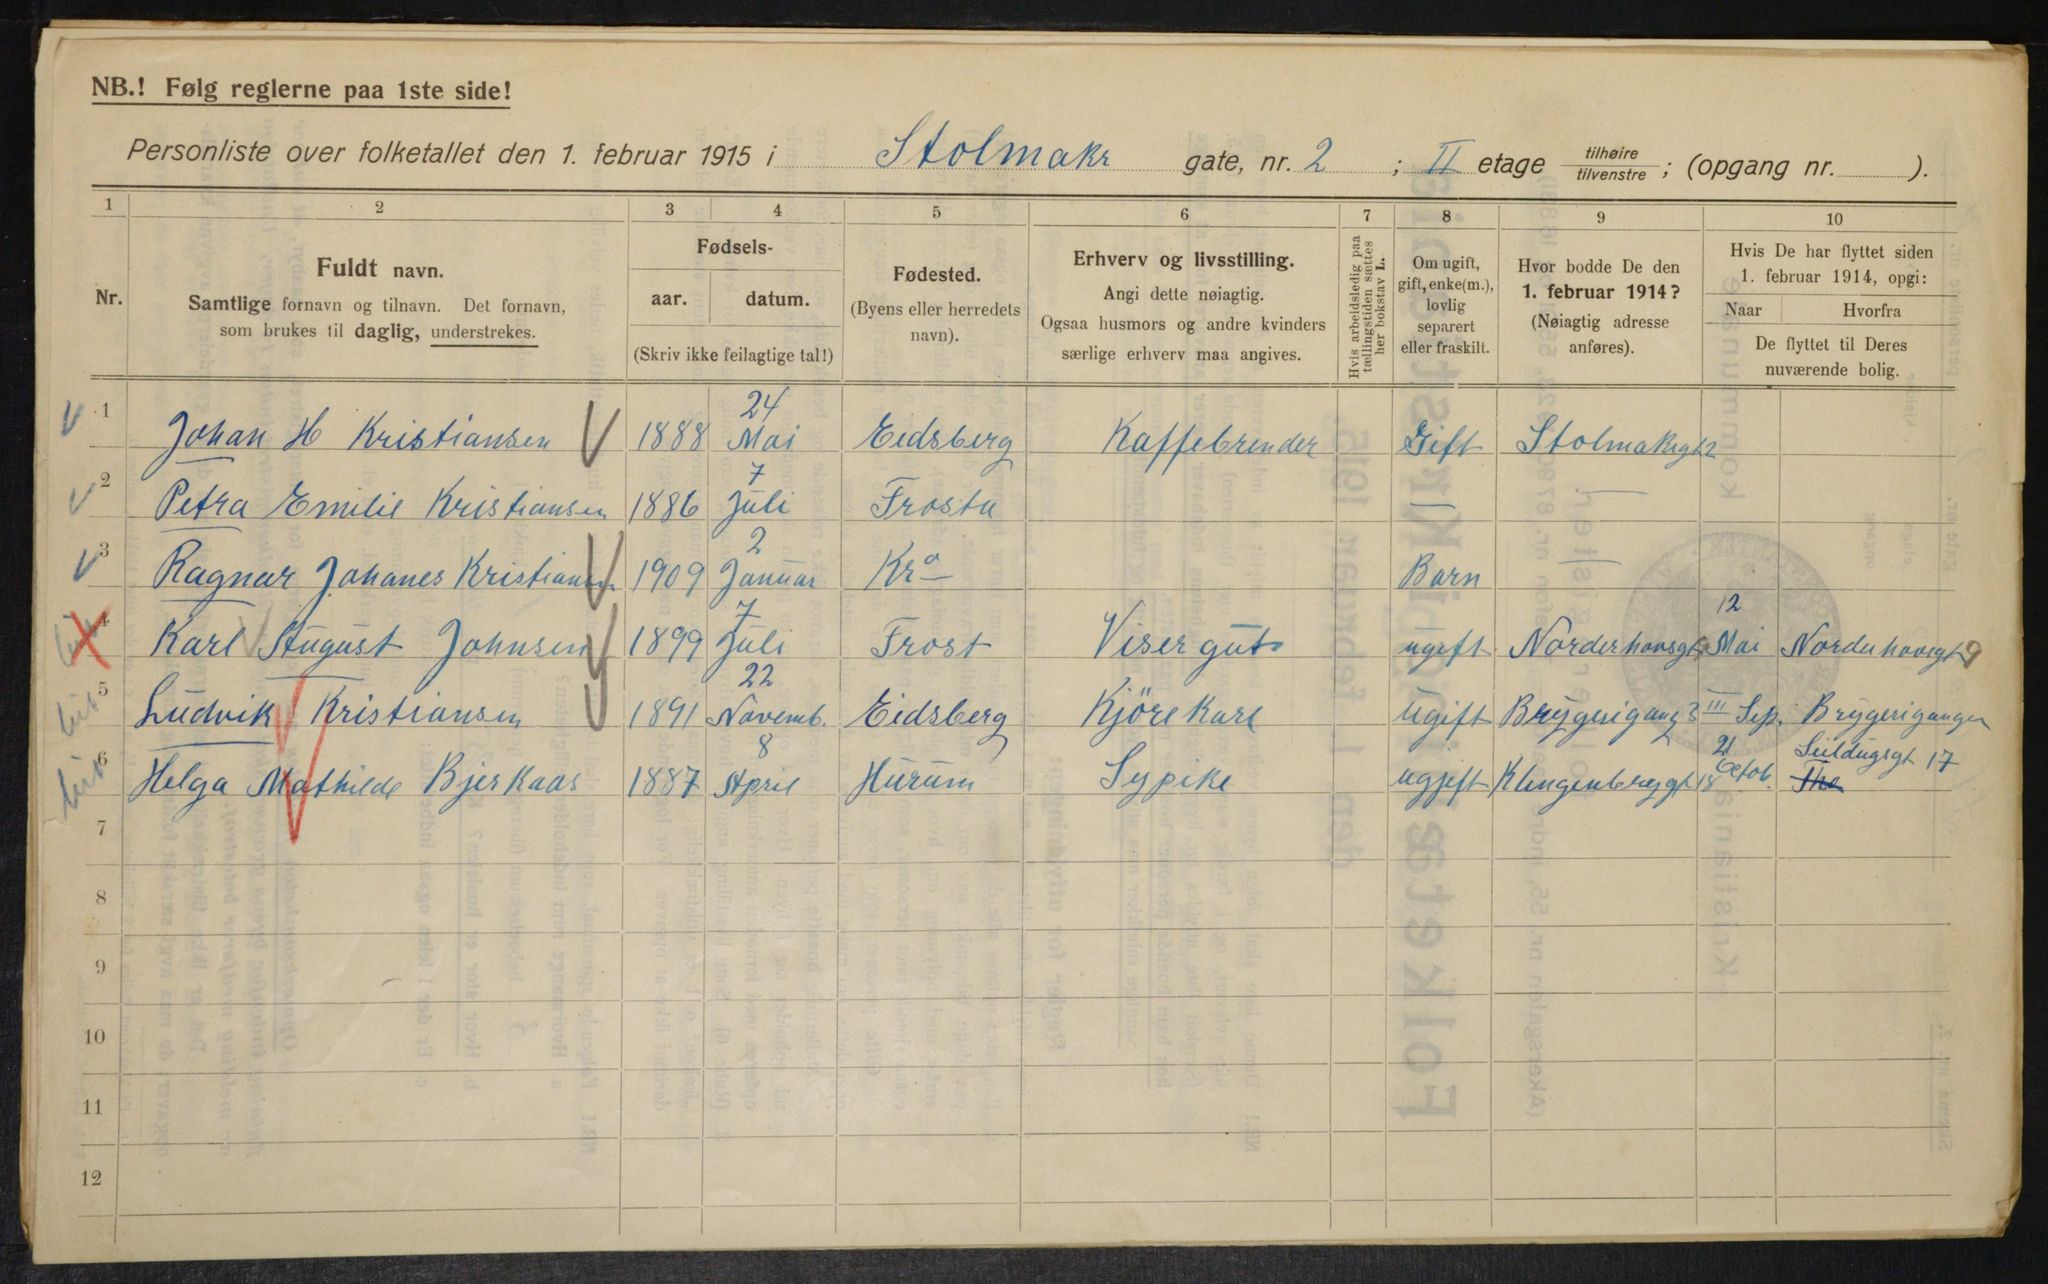 NB.! Følg reglerne paa 1ste side!
Personliste over folketallet den 1. februar 1915 i Stolmakr gate, nr. 2 ; II etage tilhøire / tilvenstre ; (opgang nr. ).
1 2 3 4 5 6 7 8 9 10
Nr.
Fuldt navn.
Samtlige fornavn og tilnavn. Det fornavn,
som brukes til daglig, understrekes.
Fødsels-
aar. datum.
(Skriv ikke feilagtige tal!)
Fødested.
(Byens eller herredets
navn).
Erhverv og livsstilling.
Angi dette nøiagtig.
Ogsaa husmors og andre kvinders
særlige erhverv maa angives.
Hvis arbeidsledig paa
tællingstiden sættes
her bokstav L.
Om ugift,
gift, enke(m.),
lovlig
separert
eller fraskilt.
Hvor bodde De den
1. februar 1914?
(Nøiagtig adresse
anføres).
Hvis De har flyttet siden
1. februar 1914, opgi:
Naar Hvorfra
De flyttet til Deres
nuværende bolig.
1 Johan H Kristiansen 1888 24 Mai Eidsberg Kaffebrender Gift Stolmakgt 2
2 Petra Emilie Kristiansen 1886 7 Juli Frosta — —
3 Ragnar Johanes Kristiansen 1909 2 Januar Kra Barn —
4 Karl August Johnsen 1899 7 Juli Frost Visergut ugift Norderhovsgt 12 Mai Norderhovsgt 9
5 Ludvik Kristiansen 1891 22 Novemb. Eidsberg Kjörekarl Ugift Bryggerigang 3 III Sep. Bryggerigangen
6 Helga Mathilde Bjerkaas 1887 8 April Hurum Sypike ugjeft Klingenberggt 18 21 Octob. Seildugsgt 17
7
8
9
10
11
12